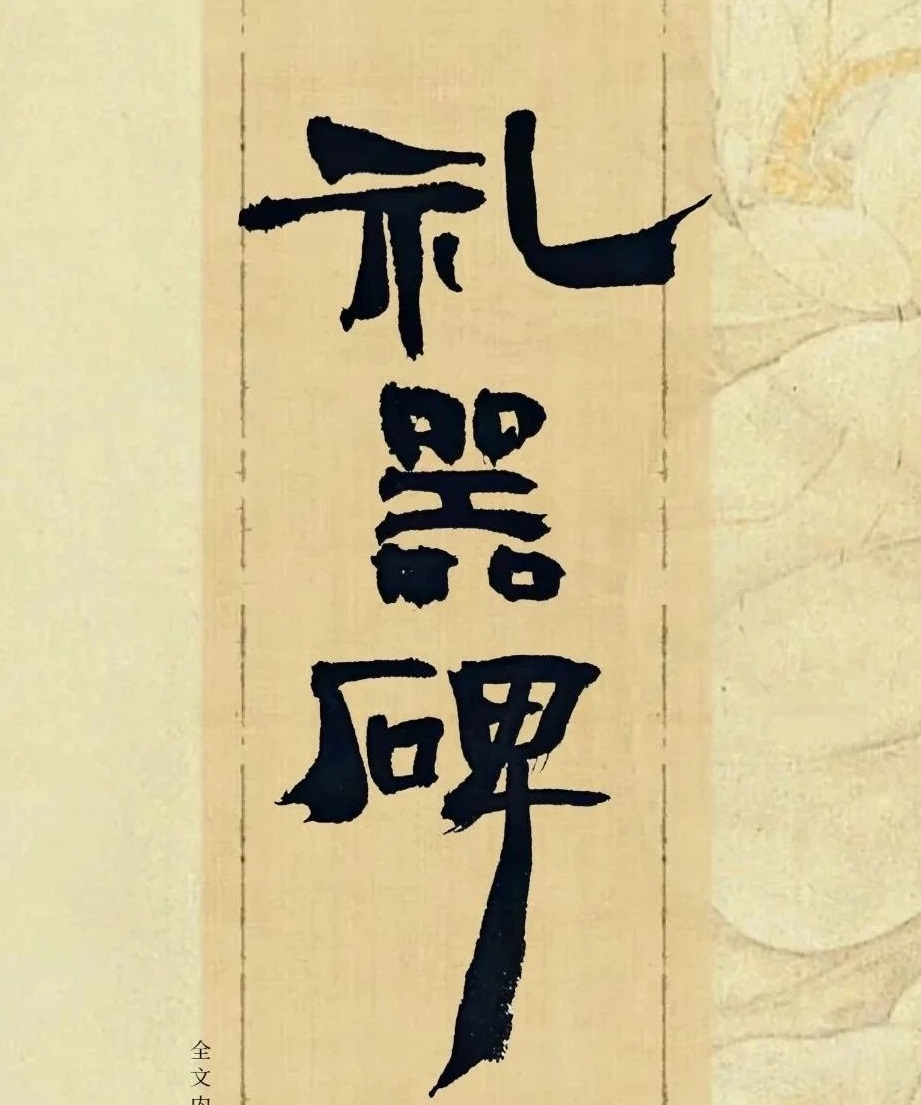 礼器碑
全文内